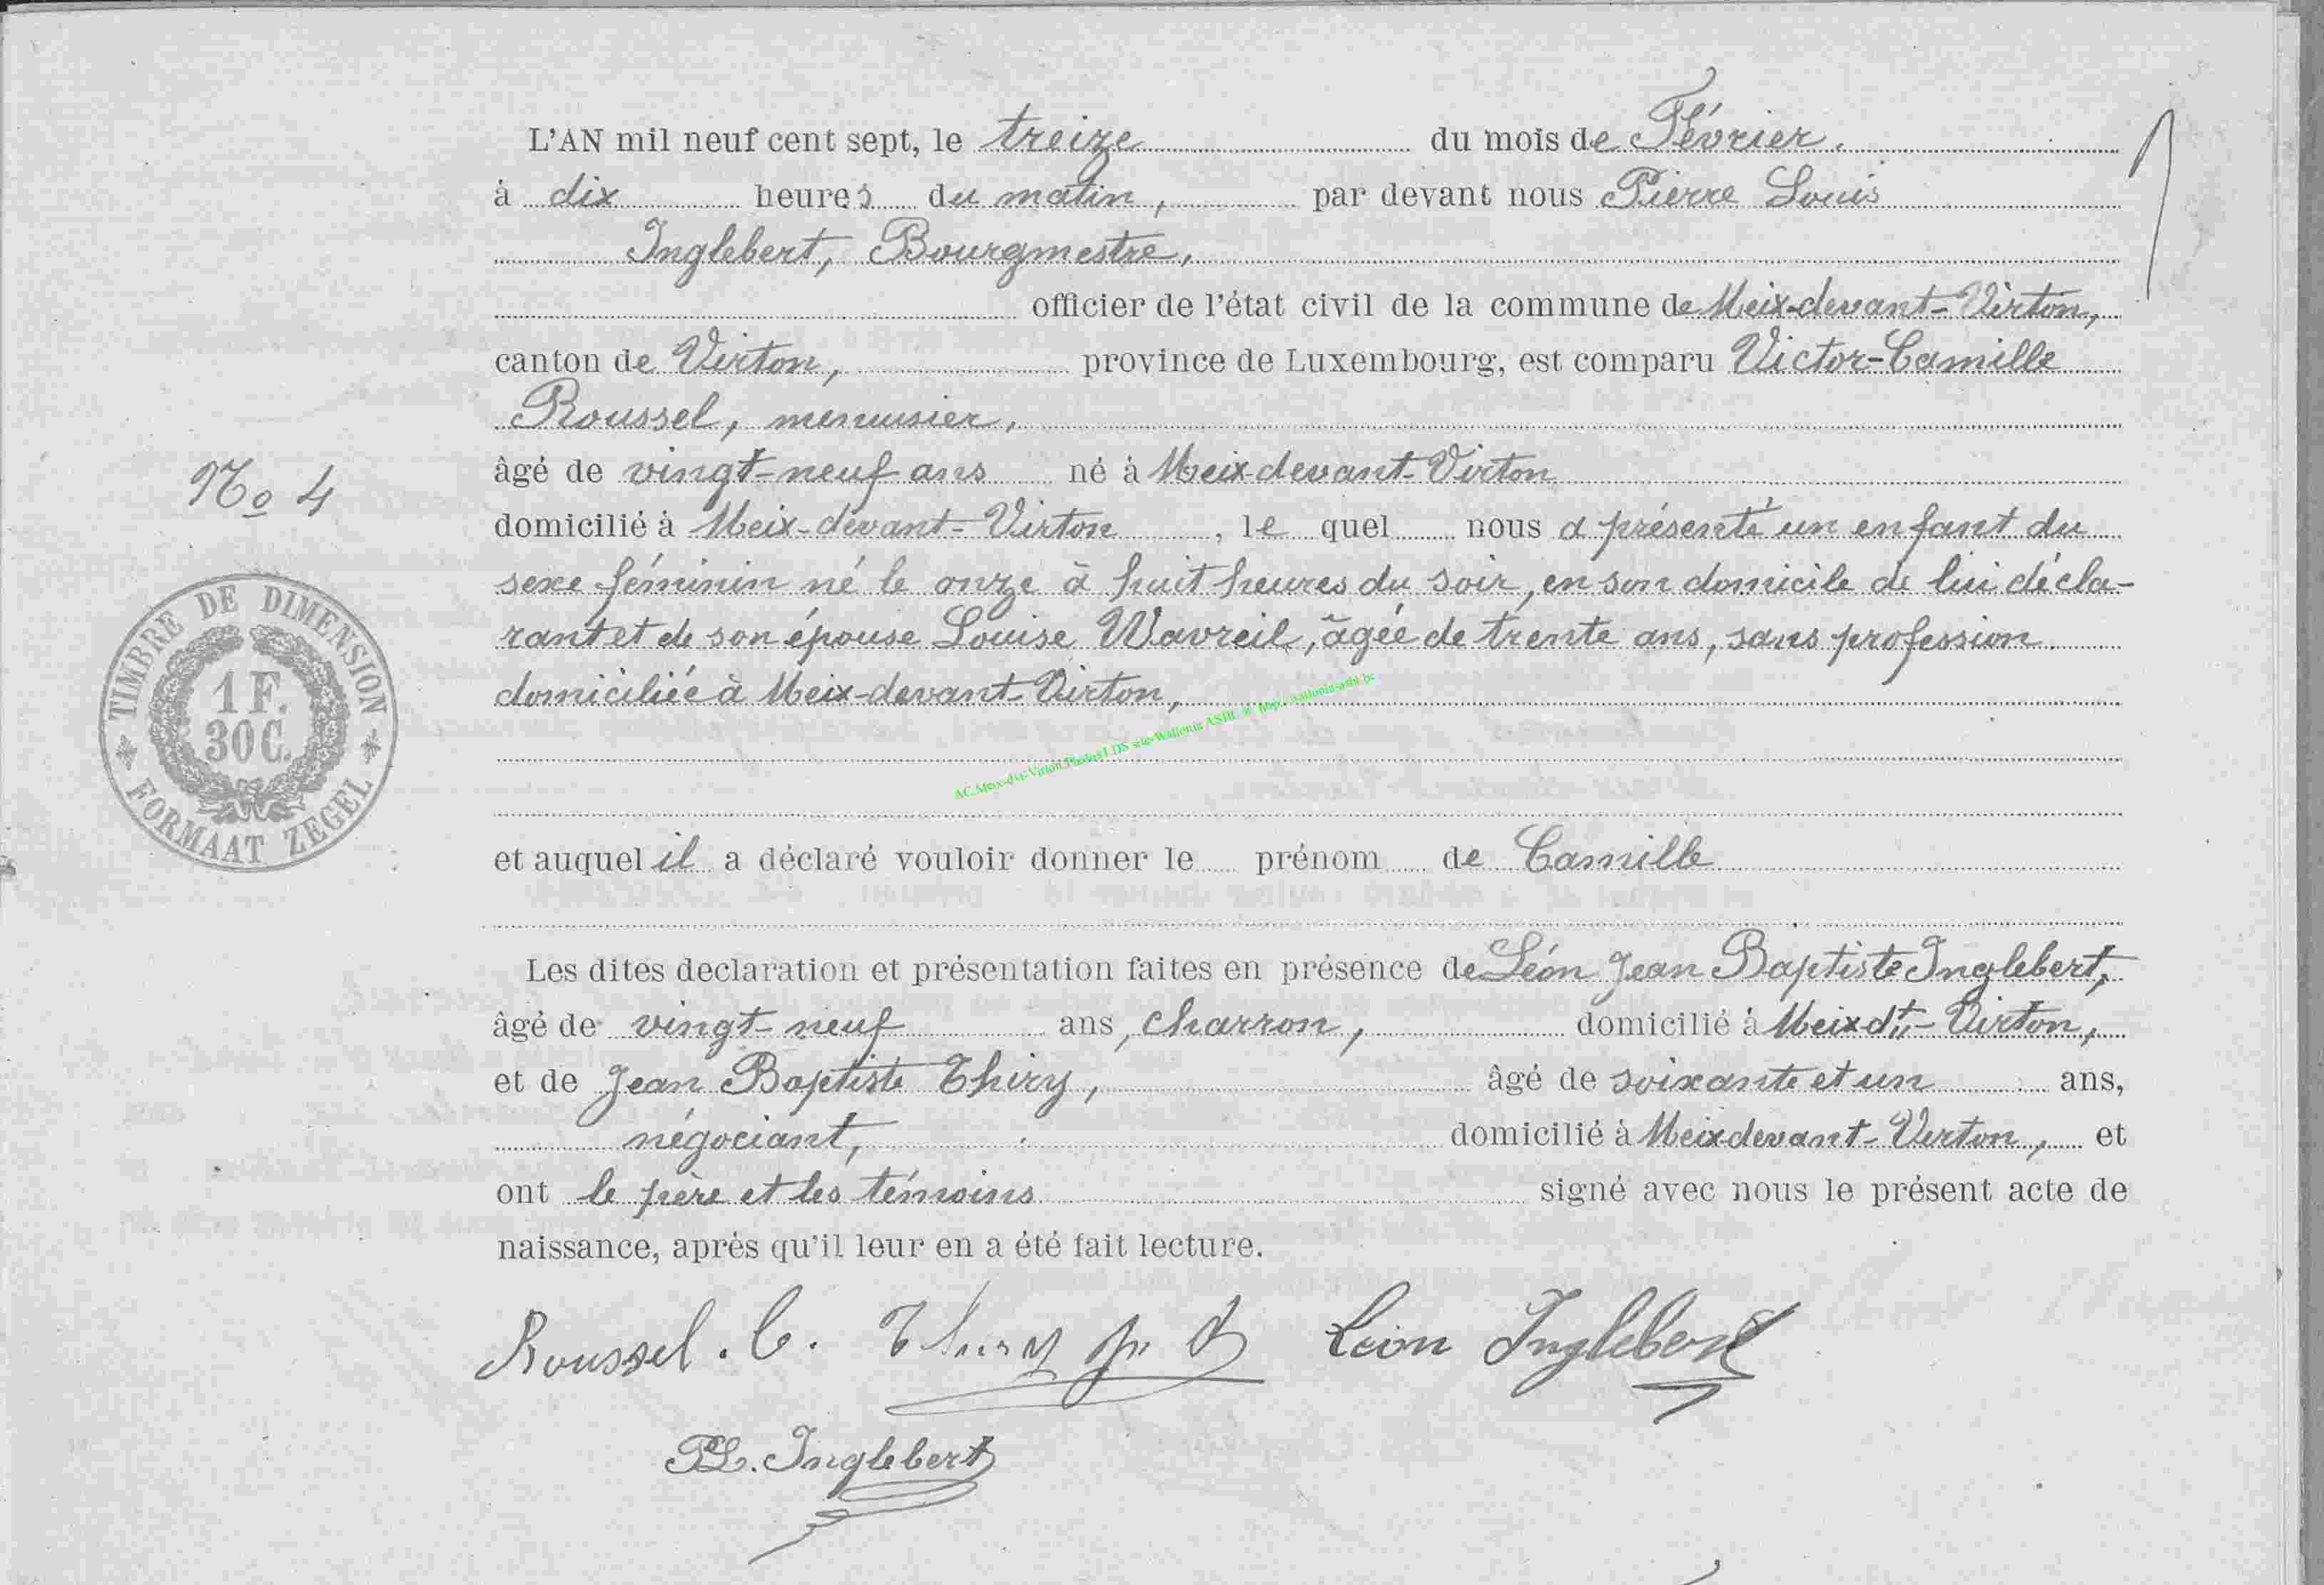 L'AN mil neuf cent sept, le treize du mois de Février.
à dix heures du matin, par devant nous Pierre Louis
Inglebert, Bourgmestre,
officier de l'état civil de la commune de Meix-devant-Virton,
canton de Virton, province de Luxembourg, est comparu Victor-Camille
Roussel, menuisier,
âgé de vingt-neuf ans né à Meix-devant-Virton
domicilié à Meix-devant-Virton, le quel nous a présenté un enfant du
sexe féminin né le onze à huit heures du soir, en son domicile de lui décla-
rant et de son épouse Louise Wavreil, âgée de trente ans, sans profession
domiciliée à Meix-devant-Virton,
et auquel il a déclaré vouloir donner le prénom de Camille
Les dites declaration et présentation faites en présence de Léon Jean Baptiste Inglebert,
âgé de vingt-neuf ans, charron, domicilié à Meix-dt-Virton,
et de Jean Baptiste Thiry, âgé de soixante et un ans,
négociant, domicilié à Meix-devant-Virton, et
ont le père et les témoins signé avec nous le présent acte de
naissance, après qu'il leur en a été fait lecture.
Roussel. C. Thiry J. B Léon Inglebert
PL. Inglebert
No 4
TIMBRE DE DIMENSION
1 F.
30 C.
FORMAAT ZEGEL